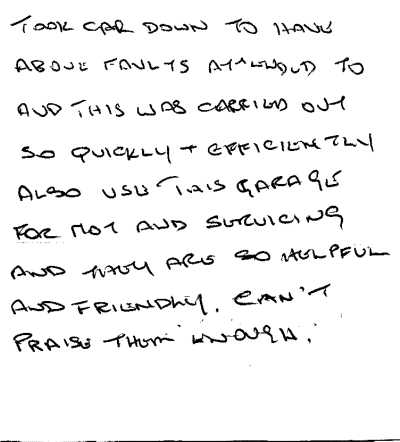 TOOK CAR DOWN TO HAVE
ABOVE FAULTS ATTENDED TO
AND THIS WAS CARRIED OUT
SO QUICKLY + EFFICIENTLY
ALSO USE THIS GARAGE
FOR MOT AND SERVICING
AND THEY ARE SO HELPFUL
AND FRIENDLY. CAN'T
PRAISE THEM ENOUGH.